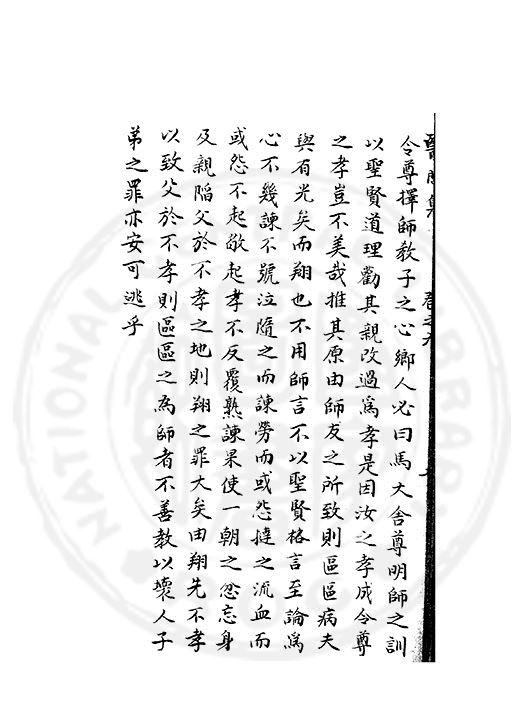 卷之九
令尊擇師教子之心鄉人必曰馬大舍尊明師之訓
以聖賢道理勸其親改過爲孝是因汝之孝成令尊
之孝豈不美哉推其原由師友之所致則區區病夫
與有光矣而翔也不用師言不以聖賢格言至論爲
心不幾諫不號泣隨之而諫勞而或怨撻之流血而
或怨不起敬起孝不反覆熟諫果使一朝之忿忘身
及親陷父於不孝之地則翔之罪大矣由翔先不孝
以致父於不孝則區區之為師者不善教以壞人子
弟之罪亦安可逃乎
NATIONAL LIBRARY